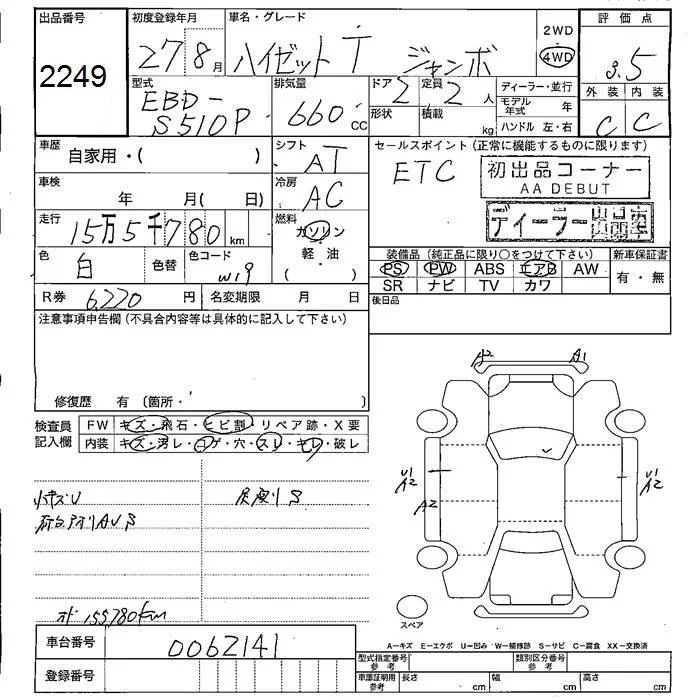 出品番号
2249
初度登録年月
27 8月
車名・グレード
ハイゼットT ジャンボ
2WD
4WD
評価点
3.5
型式
EBD-
S510P
排気量
660 CC
ドア 2
定員 2人
形状
積載 kg
ディーラー・並行
モデル年式 年
ハンドル 左・右
外装 内装
C C
車歴
自家用・( )
シフト
AT
車検
年 月( 日)
冷房
AC
走行
15万5千780km
燃料
ガソリン
軽・油
( )
色
白
色替
色コード
W19
R券 6,220円
名変期限 月 日
セールスポイント(正常に機能するものに限ります)
ETC
初出品コーナー
AA DEBUT
ディーラー出品車
装備品(純正品に限り○をつけて下さい)
新車保証書
PS PW ABS エアB AW
SR ナビ TV カワ
有・無
後日品
注意事項申告欄(不具合内容等は具体的に記入して下さい)
修復歴 有(箇所・ )
検査員記入欄
FW キズ・飛石・ヒビ割・リペア跡・X要
内装 キズ・汚レ・コゲ・穴・スレ・キレ・破レ
A2 A1
U1
A2
A2
U1
A2
小キズU
荷台アオリAUS
オド 155,780km
スペア
A－キズ E－エクボ U－凹み W－補修跡 S－サビ C－腐食 XX－交換済
車台番号
0062141
登録番号
型式指定番号参考
類別区分番号参考
車庫証明用参考
長さ cm
幅 cm
高さ cm